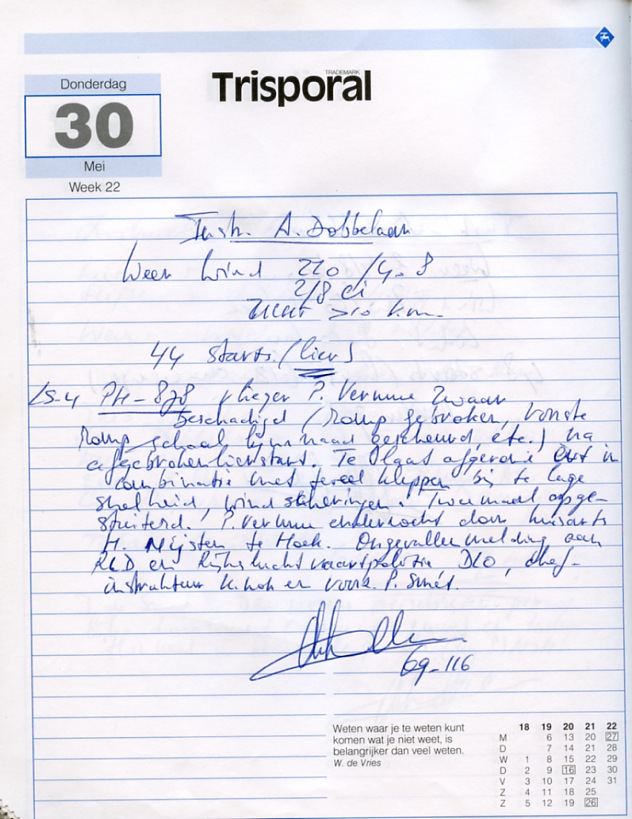 TRADEMARK
Trisporal
Donderdag
30
Mei
Week 22
Instr. A. Dobbelaar
Weer Wind 220 / 4-8
2/8 ci
zicht >10 km.
44 starts. (lier)
LS-4 PH-878 vlieger P. Vermue Zwaar
Beschadigd (Romp gebroken, voorste
Romp schaal lijmnaad gescheurd, etc.) na
afgebroken lierstart. Te laat afgeronde in
combinatie met teveel kleppen bij te lage
snelheid, windscheringen. Tweemaal opge-
stuiterd. P. Vermue onderzocht door huisarts
H. Meijster te Hoek. Ongevallen melding aan
RLD en Rijksluchtvaartpolitie DLO, chef-
instrukteur K. Kok en voorz. P. Smet.
69-116
Weten waar je te weten kunt
komen wat je niet weet, is
belangrijker dan veel weten.
W. de Vries
18 19 20 21 22
M 6 13 20 27
D 7 14 21 28
W 1 8 15 22 29
D 2 9 16 23 30
V 3 10 17 24 31
Z 4 11 18 25
Z 5 12 19 26